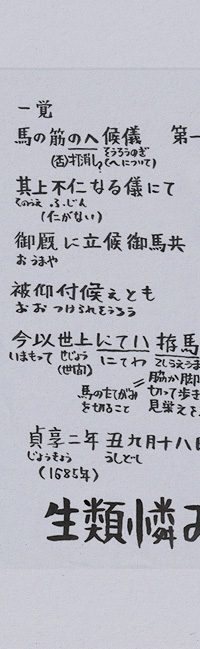 一覚
馬の筋のへ候儀 第一
(否)打消し? そうろうのぎ (へについて)
其上不仁なる儀にて
そのうえ ふじん
(仁がない)
御厩に立候御馬共
おうまや
被仰付候えとも
おおつけられそうろう
今以世上にてハ 拵馬
いまもって せじょう にてわ こしらえうま
(世間)
馬のたてがみを切ること
脇か脚
切って歩き
見栄えを
貞享二年 丑九月十八日
じょうきょう うしとし
(1685年)
生類憐み